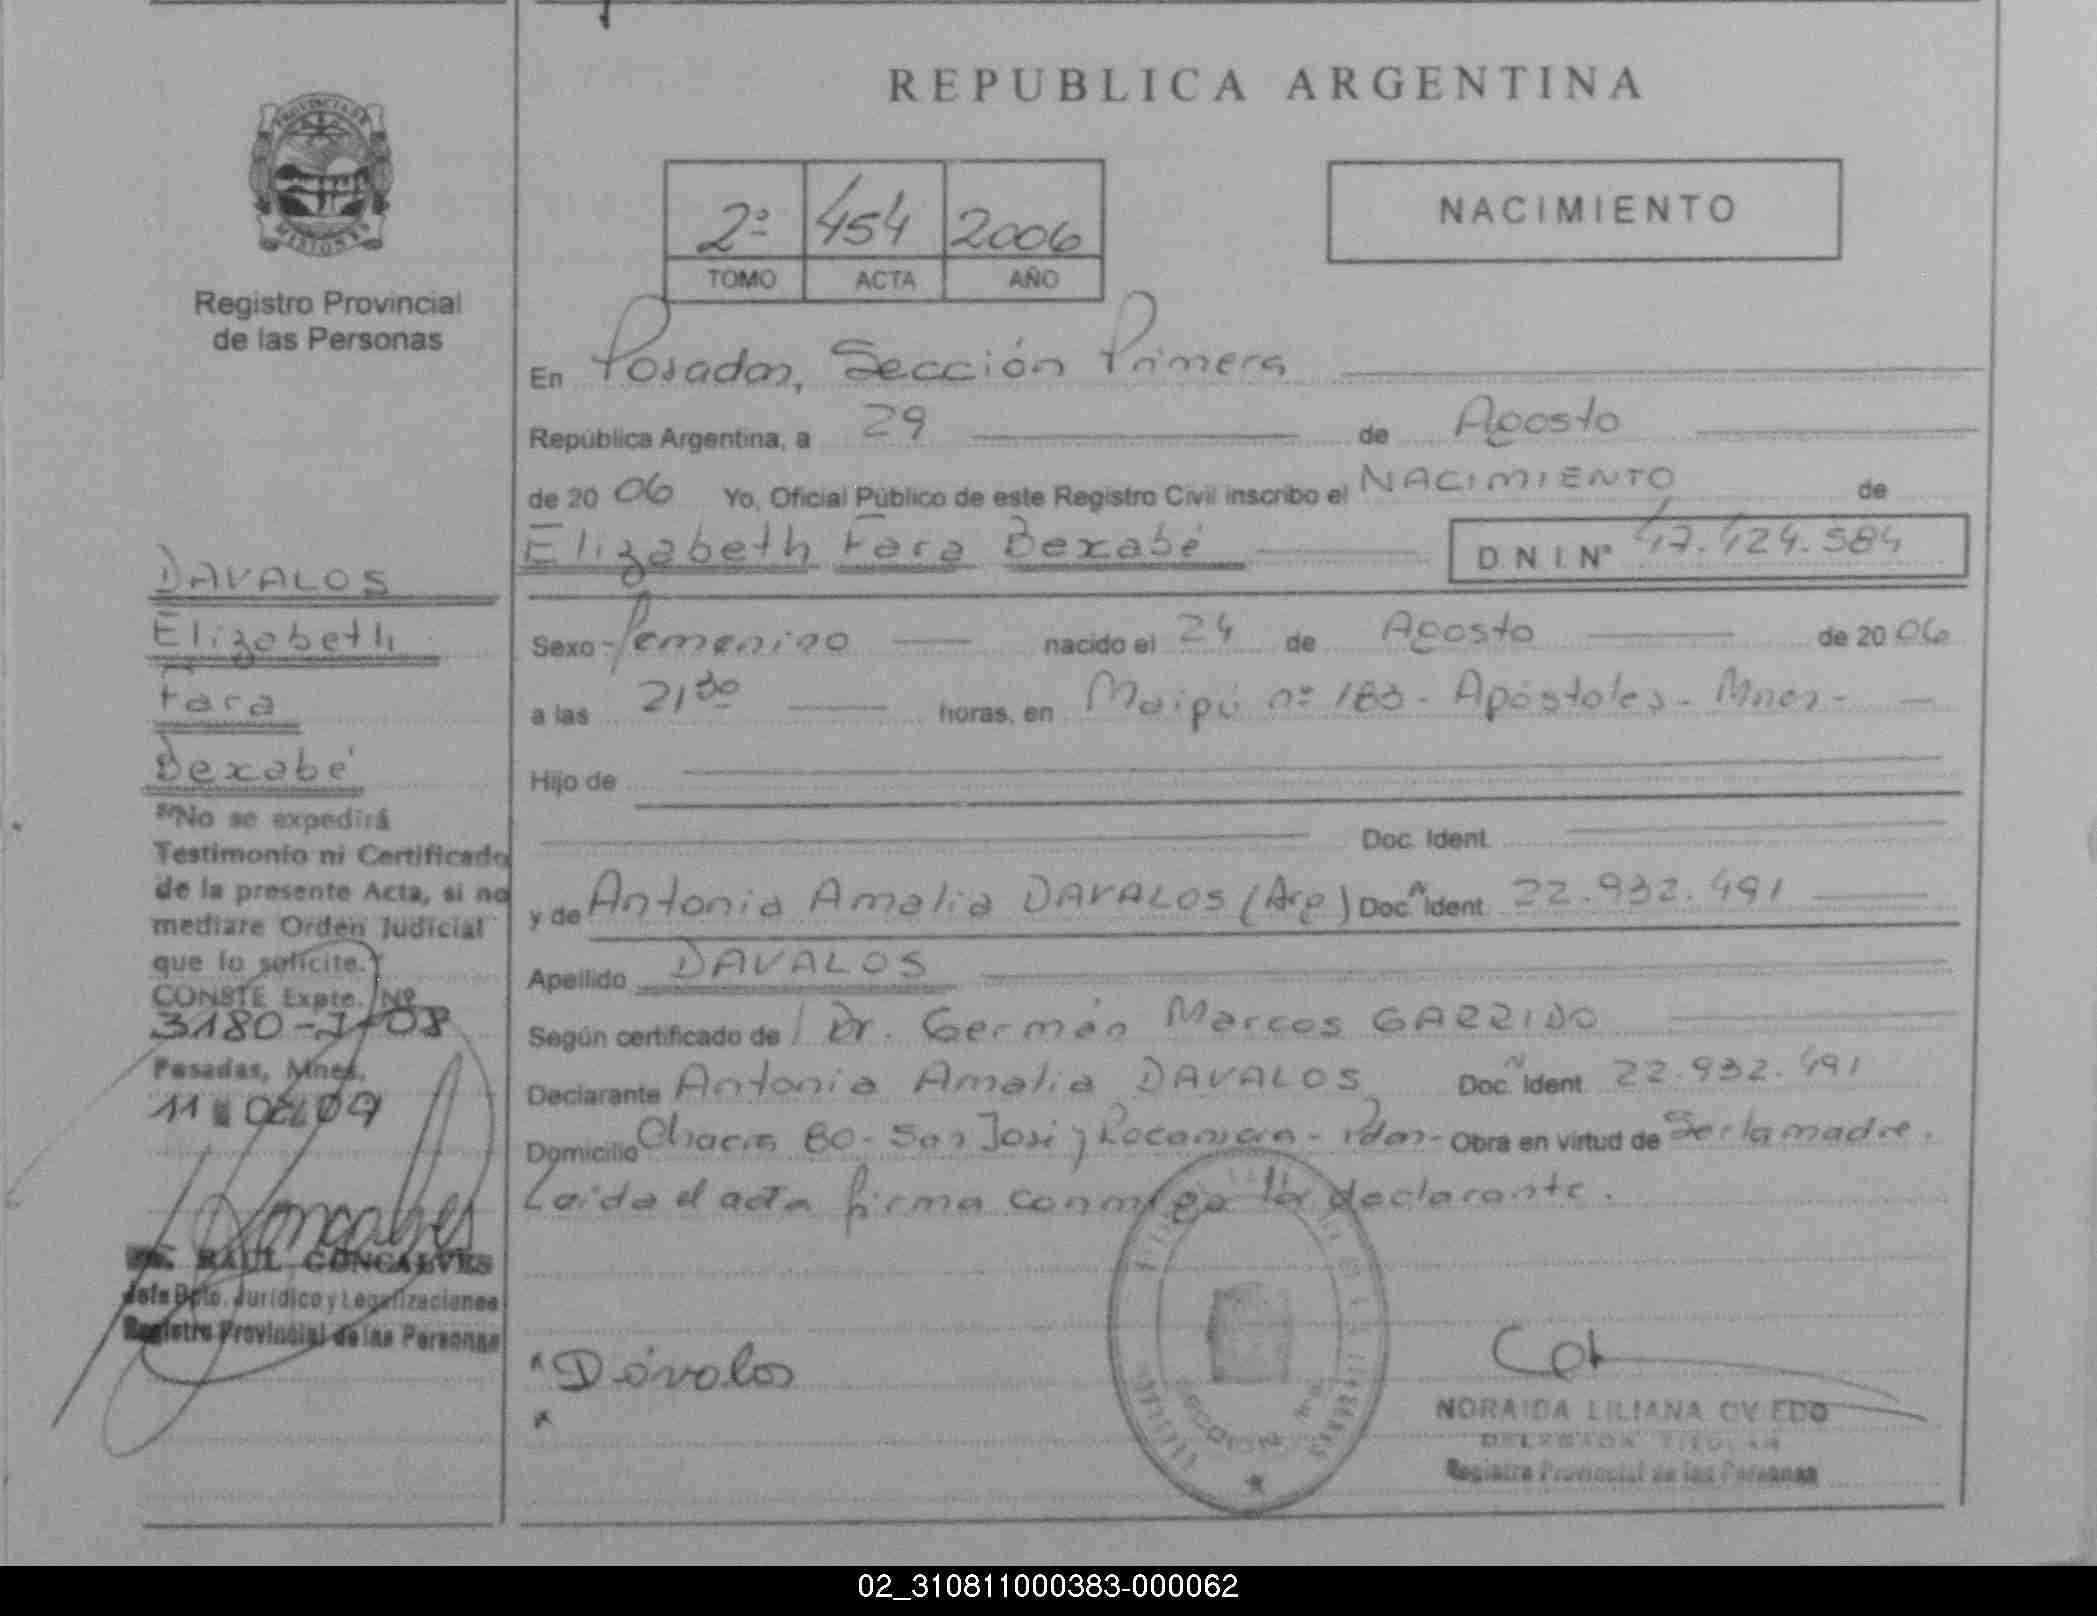 REPUBLICA ARGENTINA
PROVINCIA DE
MISIONES
Registro Provincial
de las Personas
2º 454 2006
TOMO ACTA AÑO
NACIMIENTO
En Posadas, Sección Primera
República Argentina, a 29 de Agosto
de 20 06 Yo, Oficial Público de este Registro Civil inscribo el NACIMIENTO de
Elizabeth Fara Bexabé D N I. Nº 47.424.584
Sexo Femenino nacido el 24 de Agosto de 20 06
a las 21,30 horas, en Maipú nº 183 - Apóstoles - Mnes -
Hijo de
Doc. Ident.
y de Antonia Amalia DAVALOS (Arg) Doc. Ident. 22.932.491
Apellido DAVALOS
Según certificado de Dr. Germán Marcos GARRIDO
Declarante Antonia Amalia DAVALOS Doc. Ident. 22.932.491
Domicilio Chacra 80 - San José y Rocamora - Pdas - Obra en virtud de Ser la madre.
Leída el acta firma conmigo la declarante.
Dávalos
NORAIDA LILIANA OVIEDO
DELEGADA TITULAR
Registro Provincial de las Personas
DAVALOS
Elizabeth
Fara
Bexabé
"No se expedirá
Testimonio ni Certificado
de la presente Acta, si no
mediare Orden Judicial
que lo solicite."
CONSTE Expte. Nº
3180-J-08
Posadas, Mnes,
11 09
RAUL GONCALVES
Jefe Dpto. Jurídico y Legalizaciones
Registro Provincial de las Personas
02_310811000383-000062